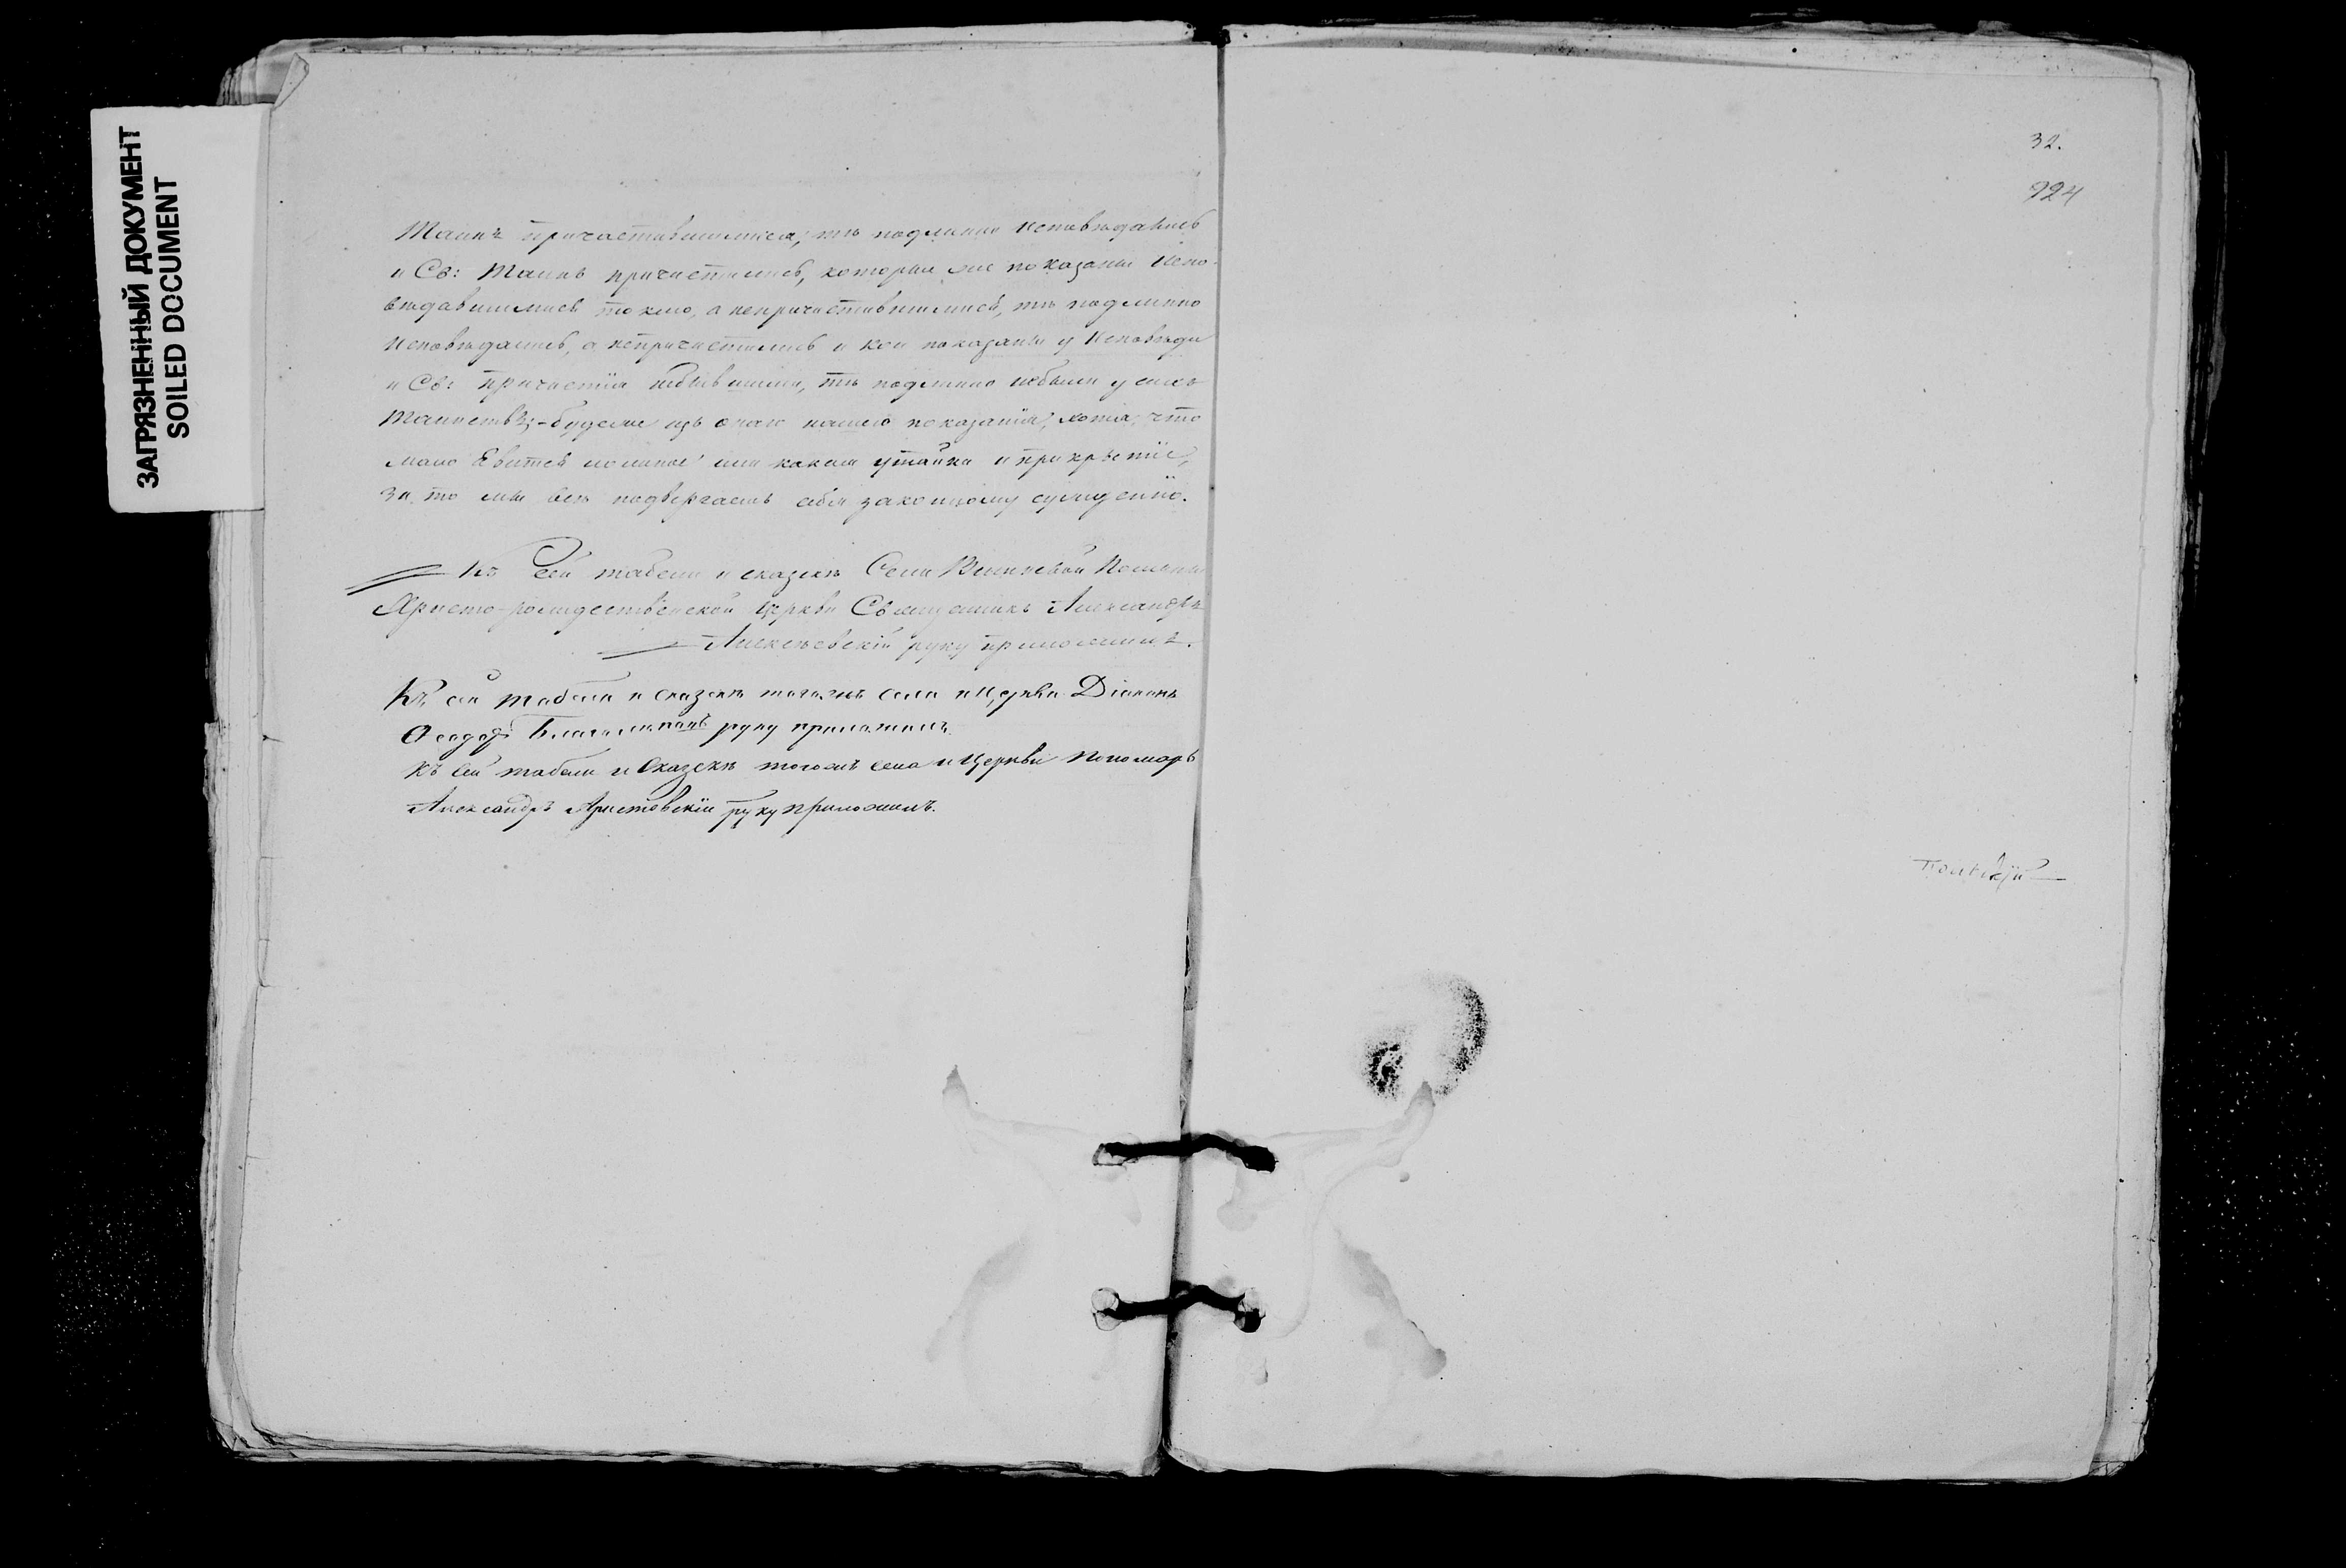 ЗАГРЯЗНЕННЫЙ ДОКУМЕНТ
SOILED DOCUMENT
Таинъ причастившимися, тѣ подлинно исповѣдались
и Св: Таинъ причастились, которые же показаны испо-
вѣдавшимись токмо, а непричастившимись, тѣ подлинно
исповѣдались, а непричастились и кои показаны у Исповѣди
и Св: причастія небывшими, тѣ подлинно небыли у сихъ
Таинствъ;- будеже изъ онаго нашего показанія, хотя что
мало явится ложное или какая утайка и прикрытіе,
за то мы всѣ подвергаемъ себя законному сужденію.
Къ сей табели и сказкѣ Села Поляны
Христо-рождественской Церкви Священникъ Александръ
Алексѣевскій руку приложилъ.
Къ сей табели и сказкѣ тогожъ села и Церкви Діаконъ
Ѳеодоръ руку приложилъ
Къ сей табели и Сказкѣ тогожъ села и Церкви Пономарь
Александръ Аристовскій руку приложилъ.
32.
924